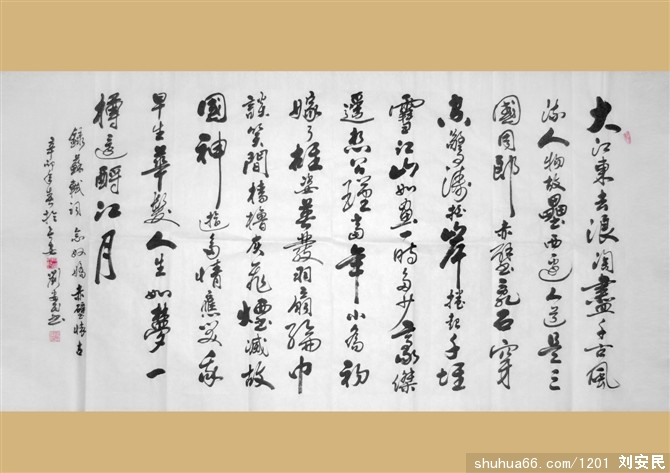 大江東去浪淘盡千古風
流人物故壘西邊人道是三
國周郎赤壁亂石穿
空驚濤拍岸捲起千堆
雪江山如畫一時多少豪傑
遥想公瑾當年小喬初
嫁了雄姿英發羽扇綸巾
談笑間檣櫓灰飛煙滅故
國神遊多情應笑我
早生華髮人生如夢一
樽還酹江月
錄蘇軾詞念奴嬌赤壁懷古
辛卯年春於 劉安民書
shuhua66.com/1201 刘安民